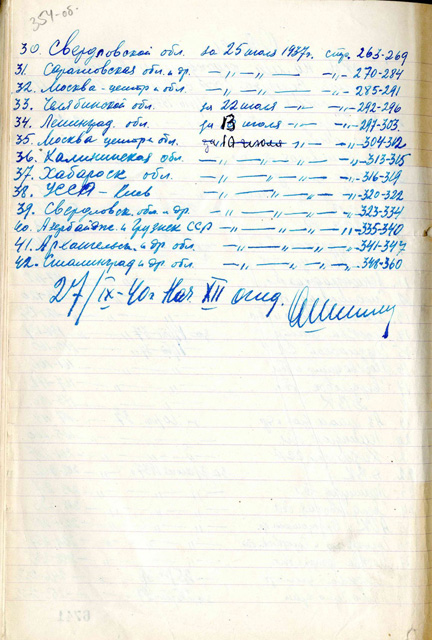 354-об.
30. Свердловской обл. за 25 июля 1937г. стр. 263-269
31. Саратовская обл. и др. —„—„— —„- 270-284
32. Москва - центр и обл. —„—„— —„- 285-291
33. Челябинской обл. за 22 июля —„— 292-296
34. Ленинград. обл. за 13 июля —„— 297-303
35. Москва центр и обл. за 10 июля „— — 304-312
36. Калининская обл. —„—„— „— 313-315
37. Хабаровск обл. —„—„— „— 316-319
38. УССР - Киев —„—„— „— 320-322
39. Свердловск. обл. и др. —„—„— „— 323-334
40. Азербайдж. и Грузинск ССР —„—„— „ 335-340
41. Архангельск. и др обл. —„—„— „ 341-347
42. Сталинград и др обл. —„—„— „— 348-360
27/IX-40г Нач XII отд.
6741